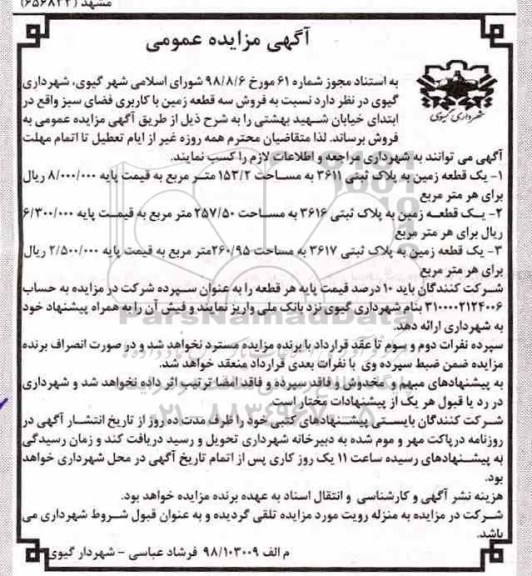 مشهد (۶۵۶۸۲۳)
آگهی مزایده عمومی
شهرداری گیوی
به استناد مجوز شماره ۶۱ مورخ ۹۸/۸/۶ شورای اسلامی شهر گیوی، شهرداری
گیوی در نظر دارد نسبت به فروش سه قطعه زمین با کاربری فضای سبز واقع در
ابتدای خیابان شهید بهشتی را به شرح ذیل از طریق آگهی مزایده عمومی به
فروش برساند. لذا متقاضیان محترم همه روزه غیر از ایام تعطیل تا اتمام مهلت
آگهی می توانند به شهرداری مراجعه و اطلاعات لازم را کسب نمایند.
۱- یک قطعه زمین به پلاک ثبتی ۳۶۱۱ به مساحت ۱۵۳/۲ متر مربع به قیمت پایه ۸/۰۰۰/۰۰۰ ریال
برای هر متر مربع
۲- یک قطعه زمین به پلاک ثبتی ۳۶۱۶ به مساحت ۲۵۷/۵۰ متر مربع به قیمت پایه ۶/۳۰۰/۰۰۰
ریال برای هر متر مربع
۳- یک قطعه زمین به پلاک ثبتی ۳۶۱۷ به مساحت ۲۶۰/۹۵متر مربع به قیمت پایه ۲/۵۰۰/۰۰۰ ریال
برای هر متر مربع
شرکت کنندگان باید ۱۰ درصد قیمت پایه هر قطعه را به عنوان سپرده شرکت در مزایده به حساب
۳۱۰۰۰۰۲۱۲۴۰۰۶ بنام شهرداری گیوی نزد بانک ملی واریز نمایند و فیش آن را به همراه پیشنهاد خود
به شهرداری ارائه دهد.
سپرده نفرات دوم و سوم تا عقد قرارداد با برنده مزایده مسترد نخواهد شد و در صورت انصراف برنده
مزایده ضمن ضبط سپرده وی با نفرات بعدی قرارداد منعقد خواهد شد.
به پیشنهادهای مبهم و مخدوش و فاقد سپرده و فاقد امضا ترتیب اثر داده نخواهد شد و شهرداری
در رد یا قبول هر یک از پیشنهادات مختار است
شرکت کنندگان بایستی پیشنهادهای کتبی خود را ظرف مدت ده روز از تاریخ انتشار آگهی در
روزنامه در پاکت مهر و موم شده به دبیرخانه شهرداری تحویل و رسید دریافت کند و زمان رسیدگی
به پیشنهادهای رسیده ساعت ۱۱ یک روز کاری پس از اتمام تاریخ آگهی در محل شهرداری خواهد
بود.
هزینه نشر آگهی و کارشناسی و انتقال اسناد به عهده برنده مزایده خواهد بود.
شرکت در مزایده به منزله رویت مورد مزایده تلقی گردیده و به عنوان قبول شروط شهرداری می
باشد.
م الف ۹۸/۱۰۳۰۰۹ فرشاد عباسی - شهردار گیوی
ParsNamadData
۰۲۱-۸۸۳۴۹۶۷۰-۵